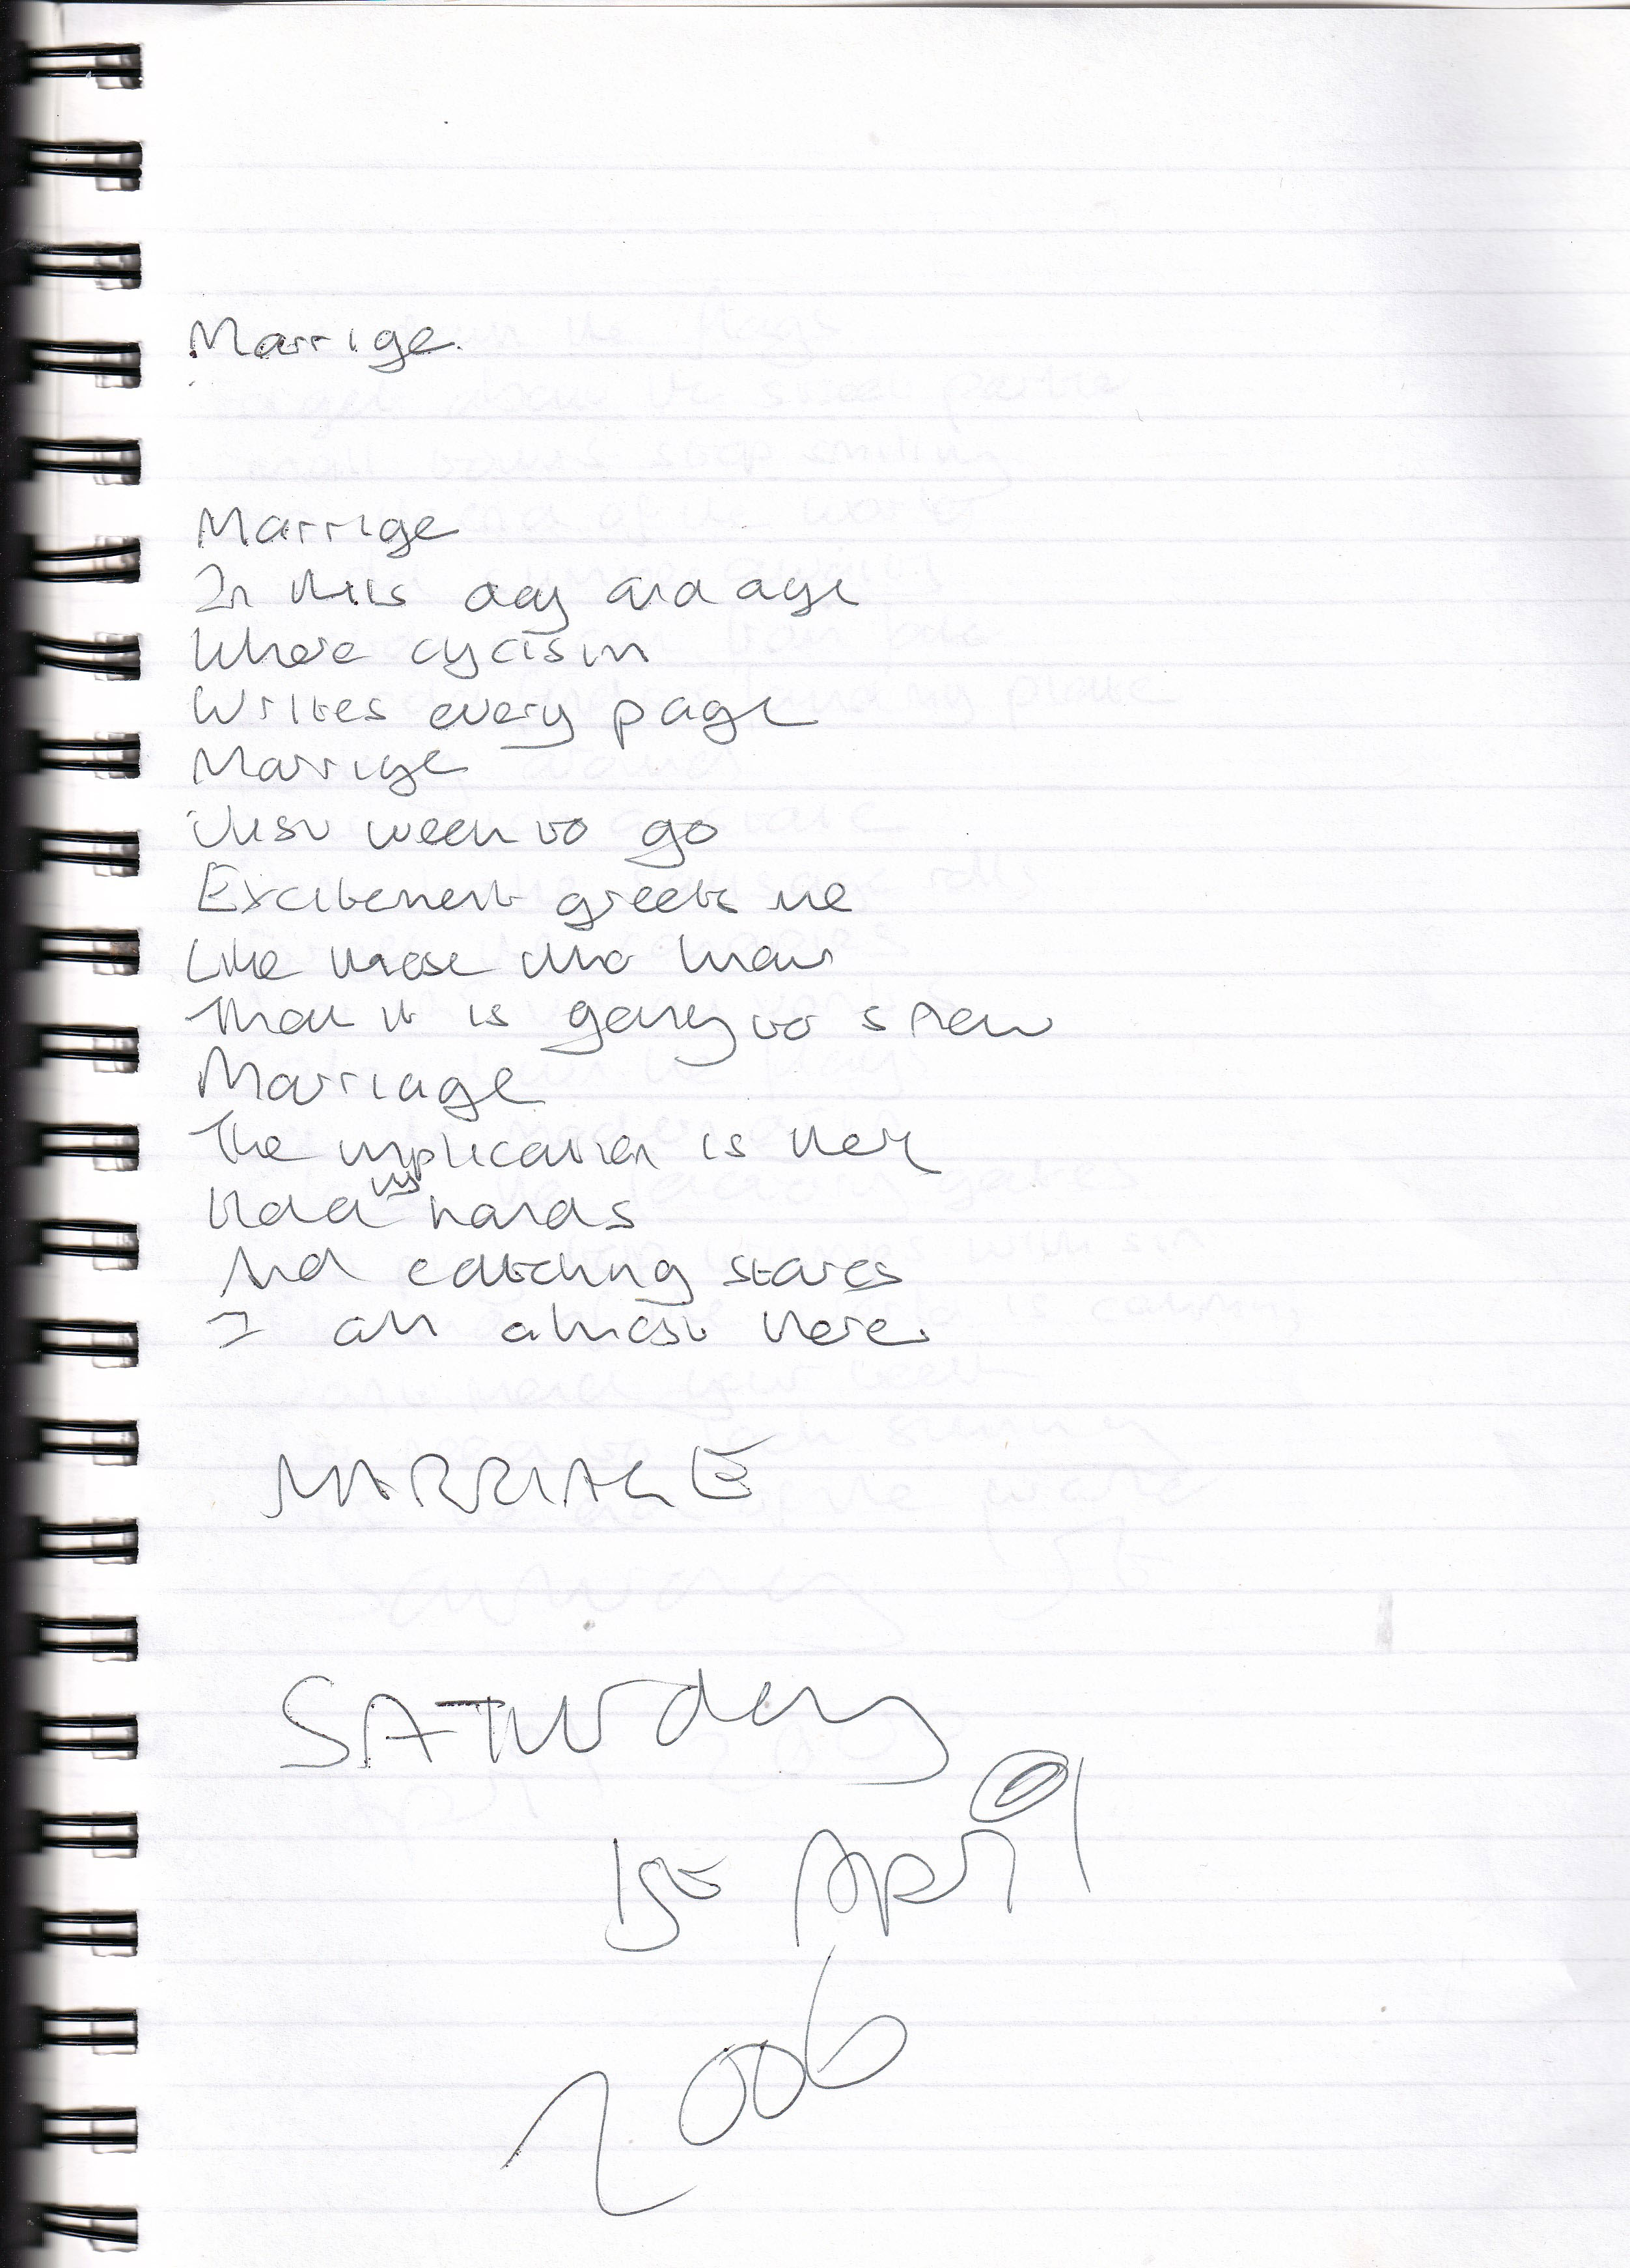 Marrige.
Marrige
In this day and age
Where cycism
Writes every page
Marrige
Just week to go
Excitement greets me
Like those who know
That it is going to snow
Marriage
The implication is there
Hold ing hands
And catching stares
I am almost there.
MARRIAGE
SATurday
1st April
2006